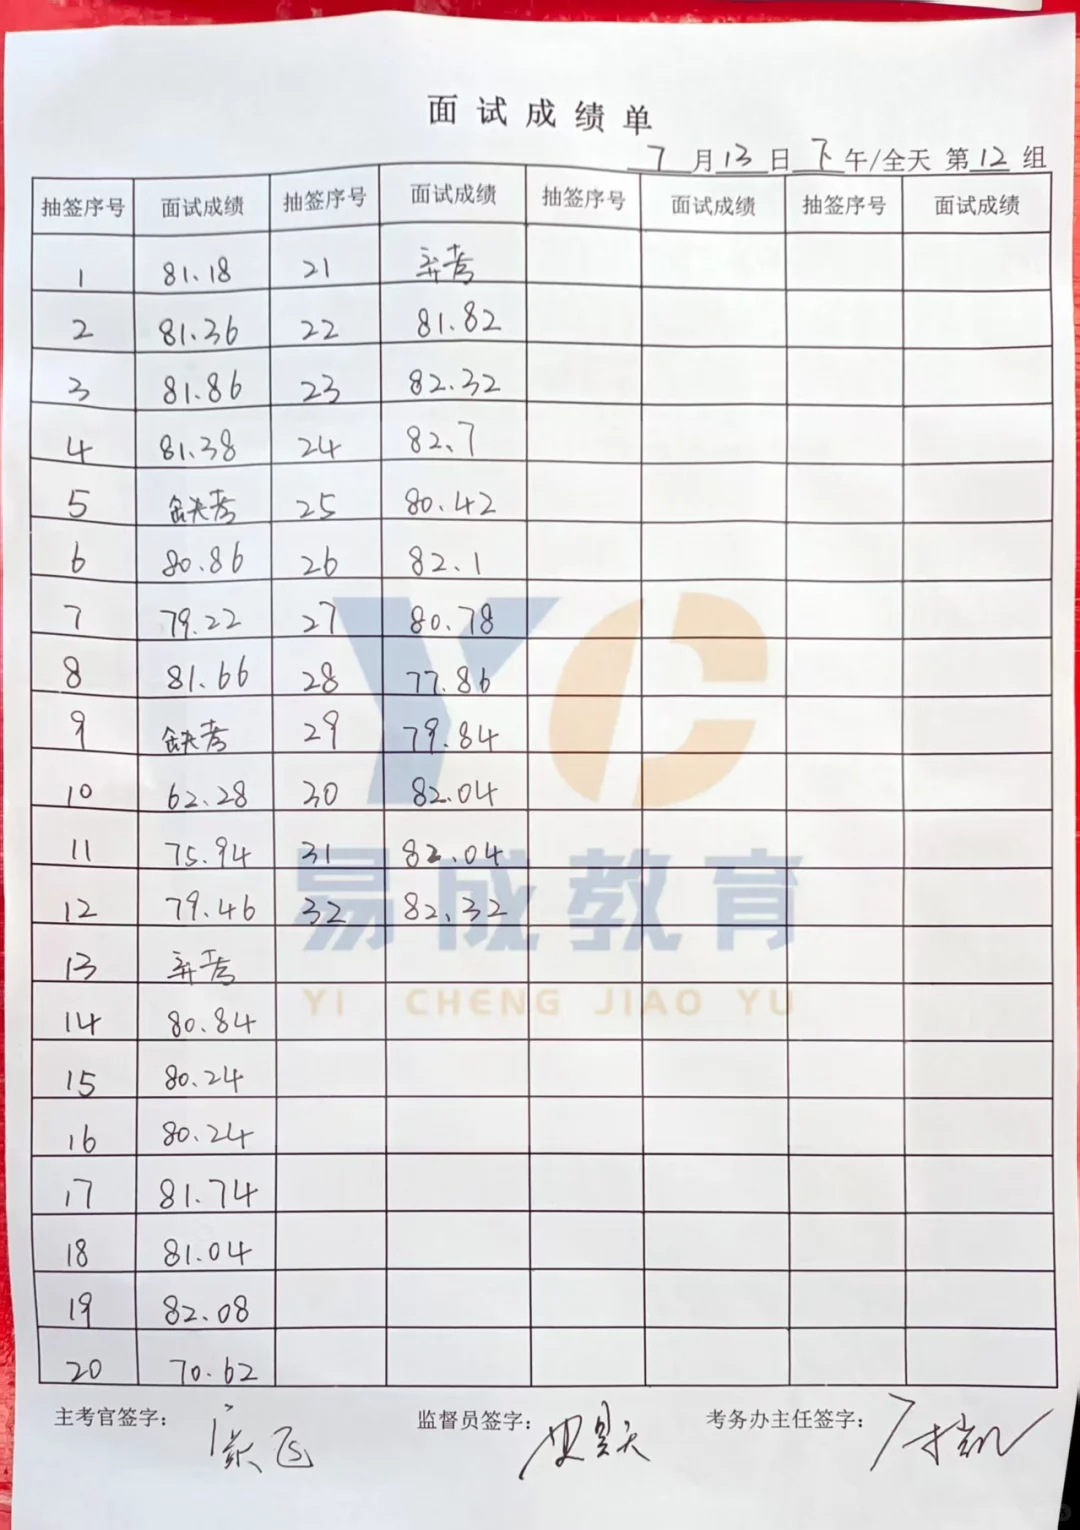 面试成绩单
7月13日下午/全天 第12组
抽签序号 面试成绩 抽签序号 面试成绩 抽签序号 面试成绩 抽签序号 面试成绩
1 81.18 21 弃考
2 81.36 22 81.82
3 81.86 23 82.32
4 81.38 24 82.7
5 缺考 25 80.42
6 80.86 26 82.1
7 79.22 27 80.78
8 81.66 28 77.86
9 缺考 29 79.84
10 62.28 30 82.04
11 75.94 31 82.04
12 79.46 32 82.32
13 弃考
14 80.84
15 80.24
16 80.24
17 81.74
18 81.04
19 82.08
20 70.62
主考官签字： 监督员签字： 考务办主任签字：
YC
易成教育
YI CHENG JIAO YU